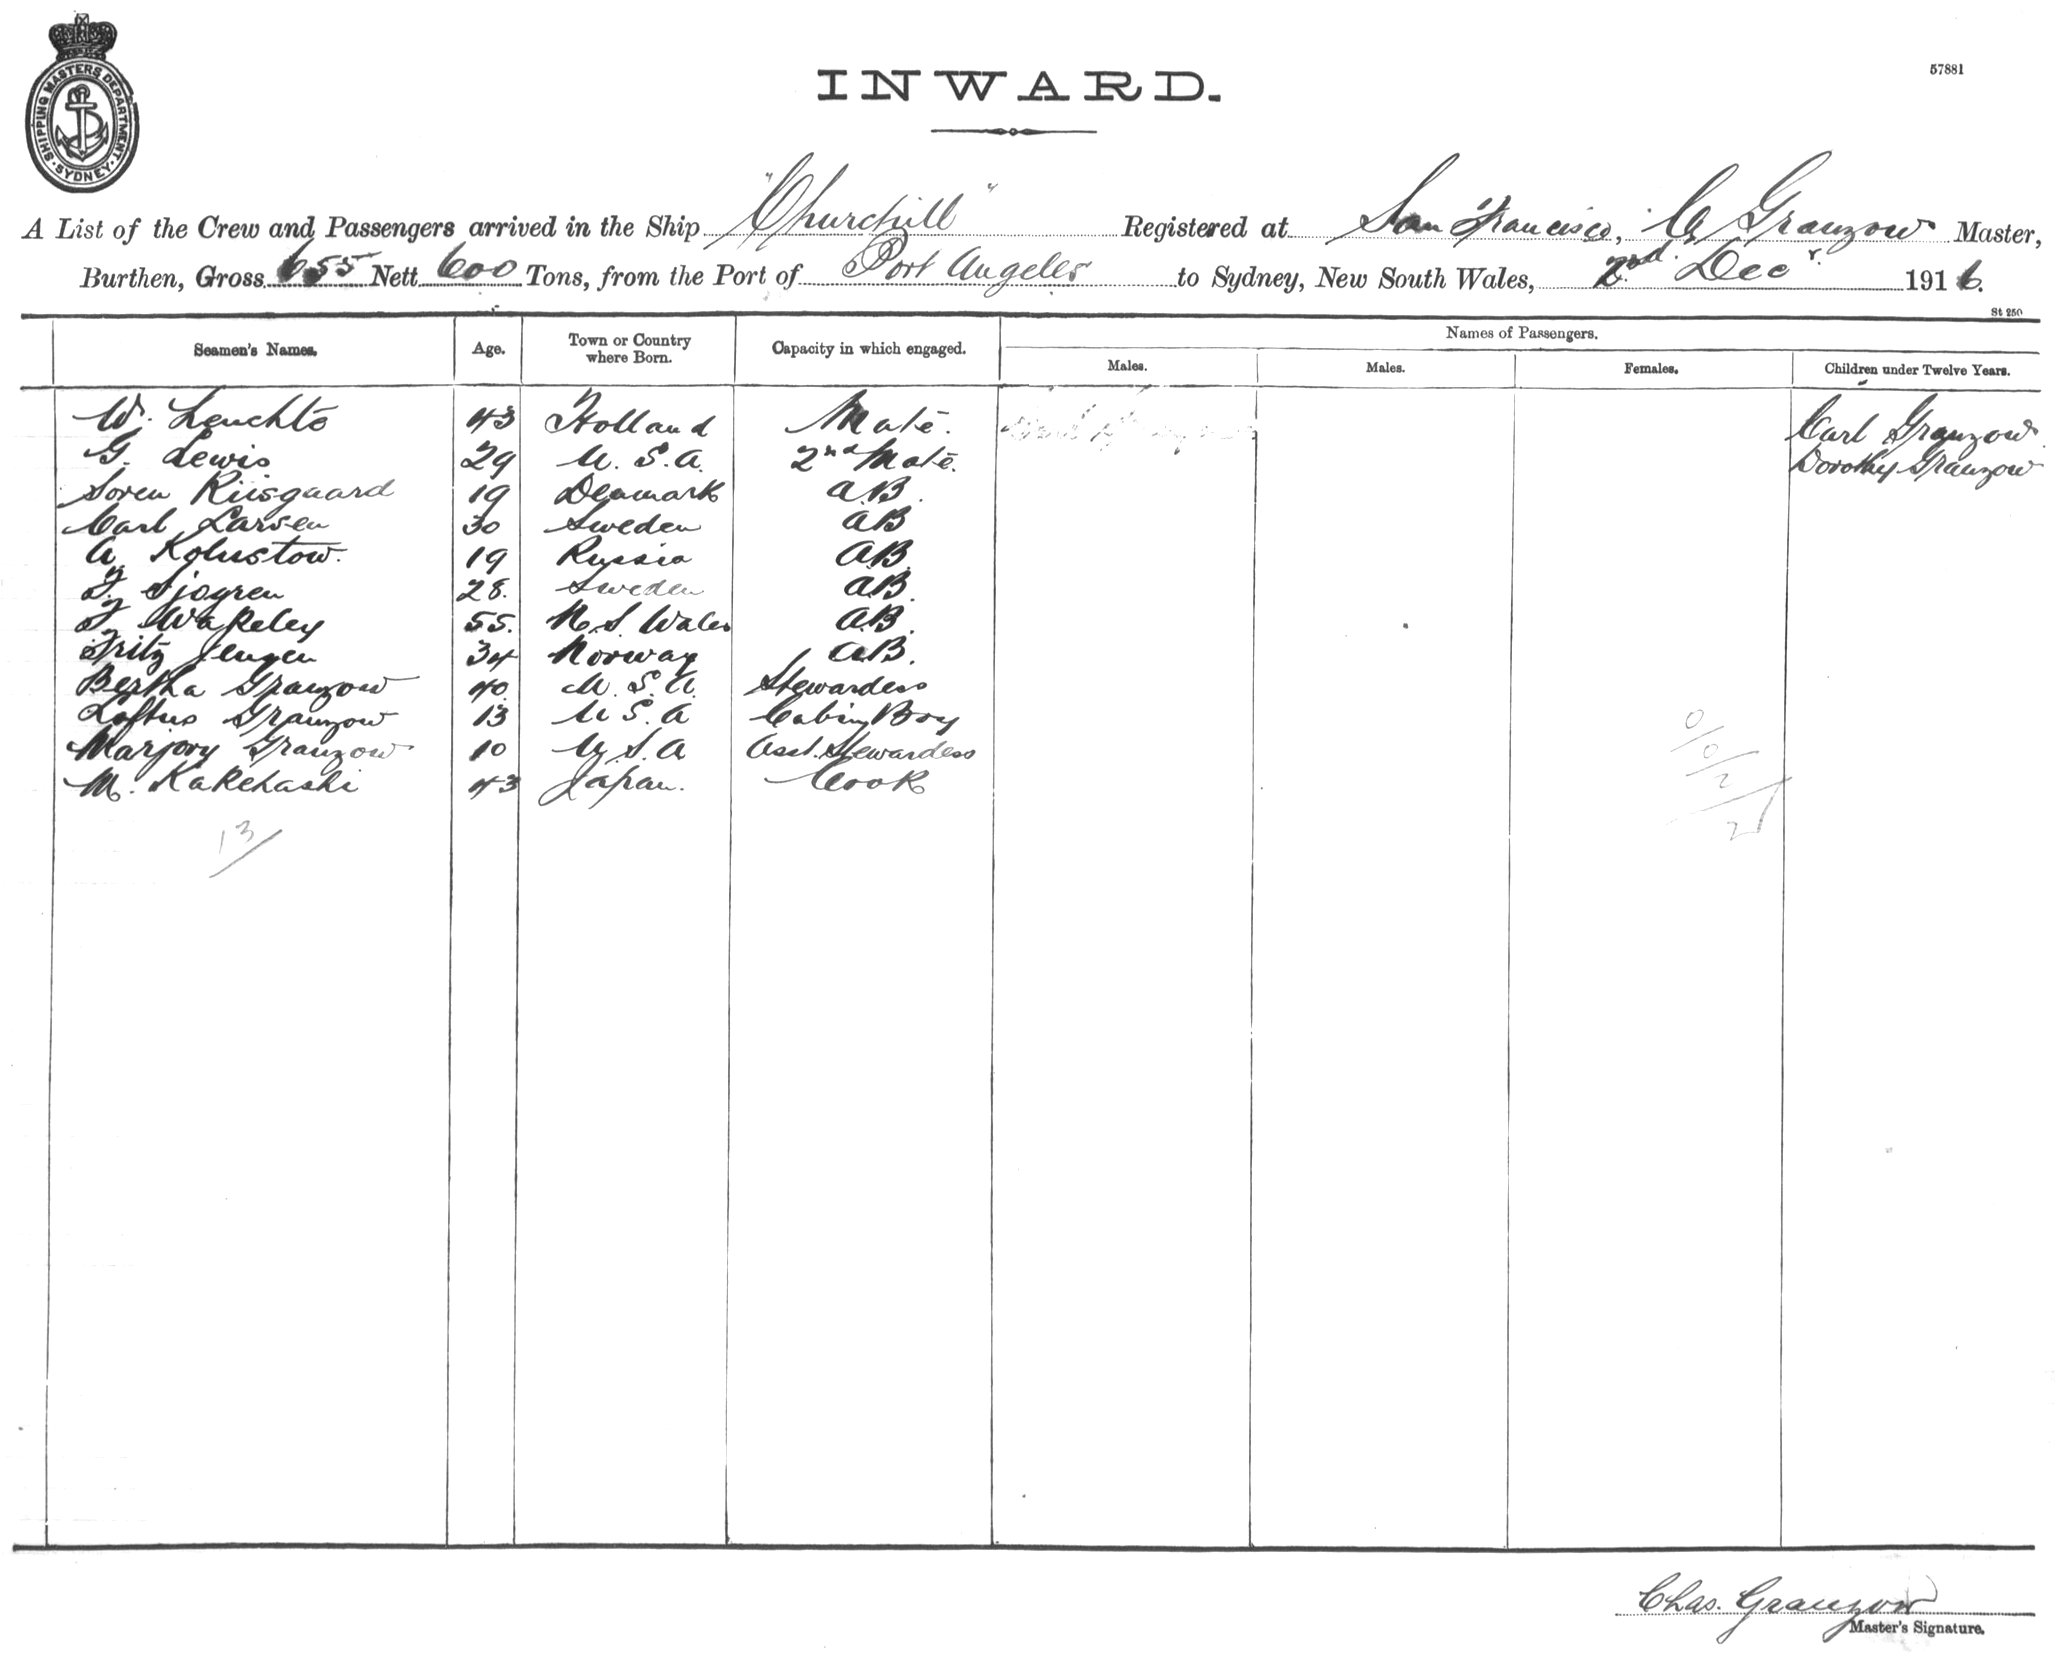 SHIPPING MASTERS DEPARTMENT
SYDNEY
57881
INWARD.
A List of the Crew and Passengers arrived in the Ship "Churchill" Registered at San Francisco, C. Granzow Master,
Burthen, Gross 655 Nett 600 Tons, from the Port of Port Angeles to Sydney, New South Wales, 2nd Decr. 1916.
St 250
Seamen's Names. Age. Town or Country where Born. Capacity in which engaged. Names of Passengers.
Males. Males. Females. Children under Twelve Years.
W. 43 Holland Mate. Carl Granzow
G. Lewis 29 U.S.A. 2nd Mate. Dorothy Granzow
Soren Riisgaard 19 Denmark A.B.
Carl Larsen 30 Sweden A.B
A. 19 Russia A.B.
Sjogren 28. Sweden A.B.
Wakeley 55. N.S. Wales A.B.
Fritz 34 Norway A.B.
Bertha Granzow 40. U.S.A. Stewardess
Loftus Granzow 13 U S. A Cabin Boy
Marjory Granzow 10 U.S.A Asst. Stewardess
M. Kakehashi 43 Japan. Cook
0/0/2/2
13
Chas. Granzow
Master's Signature.